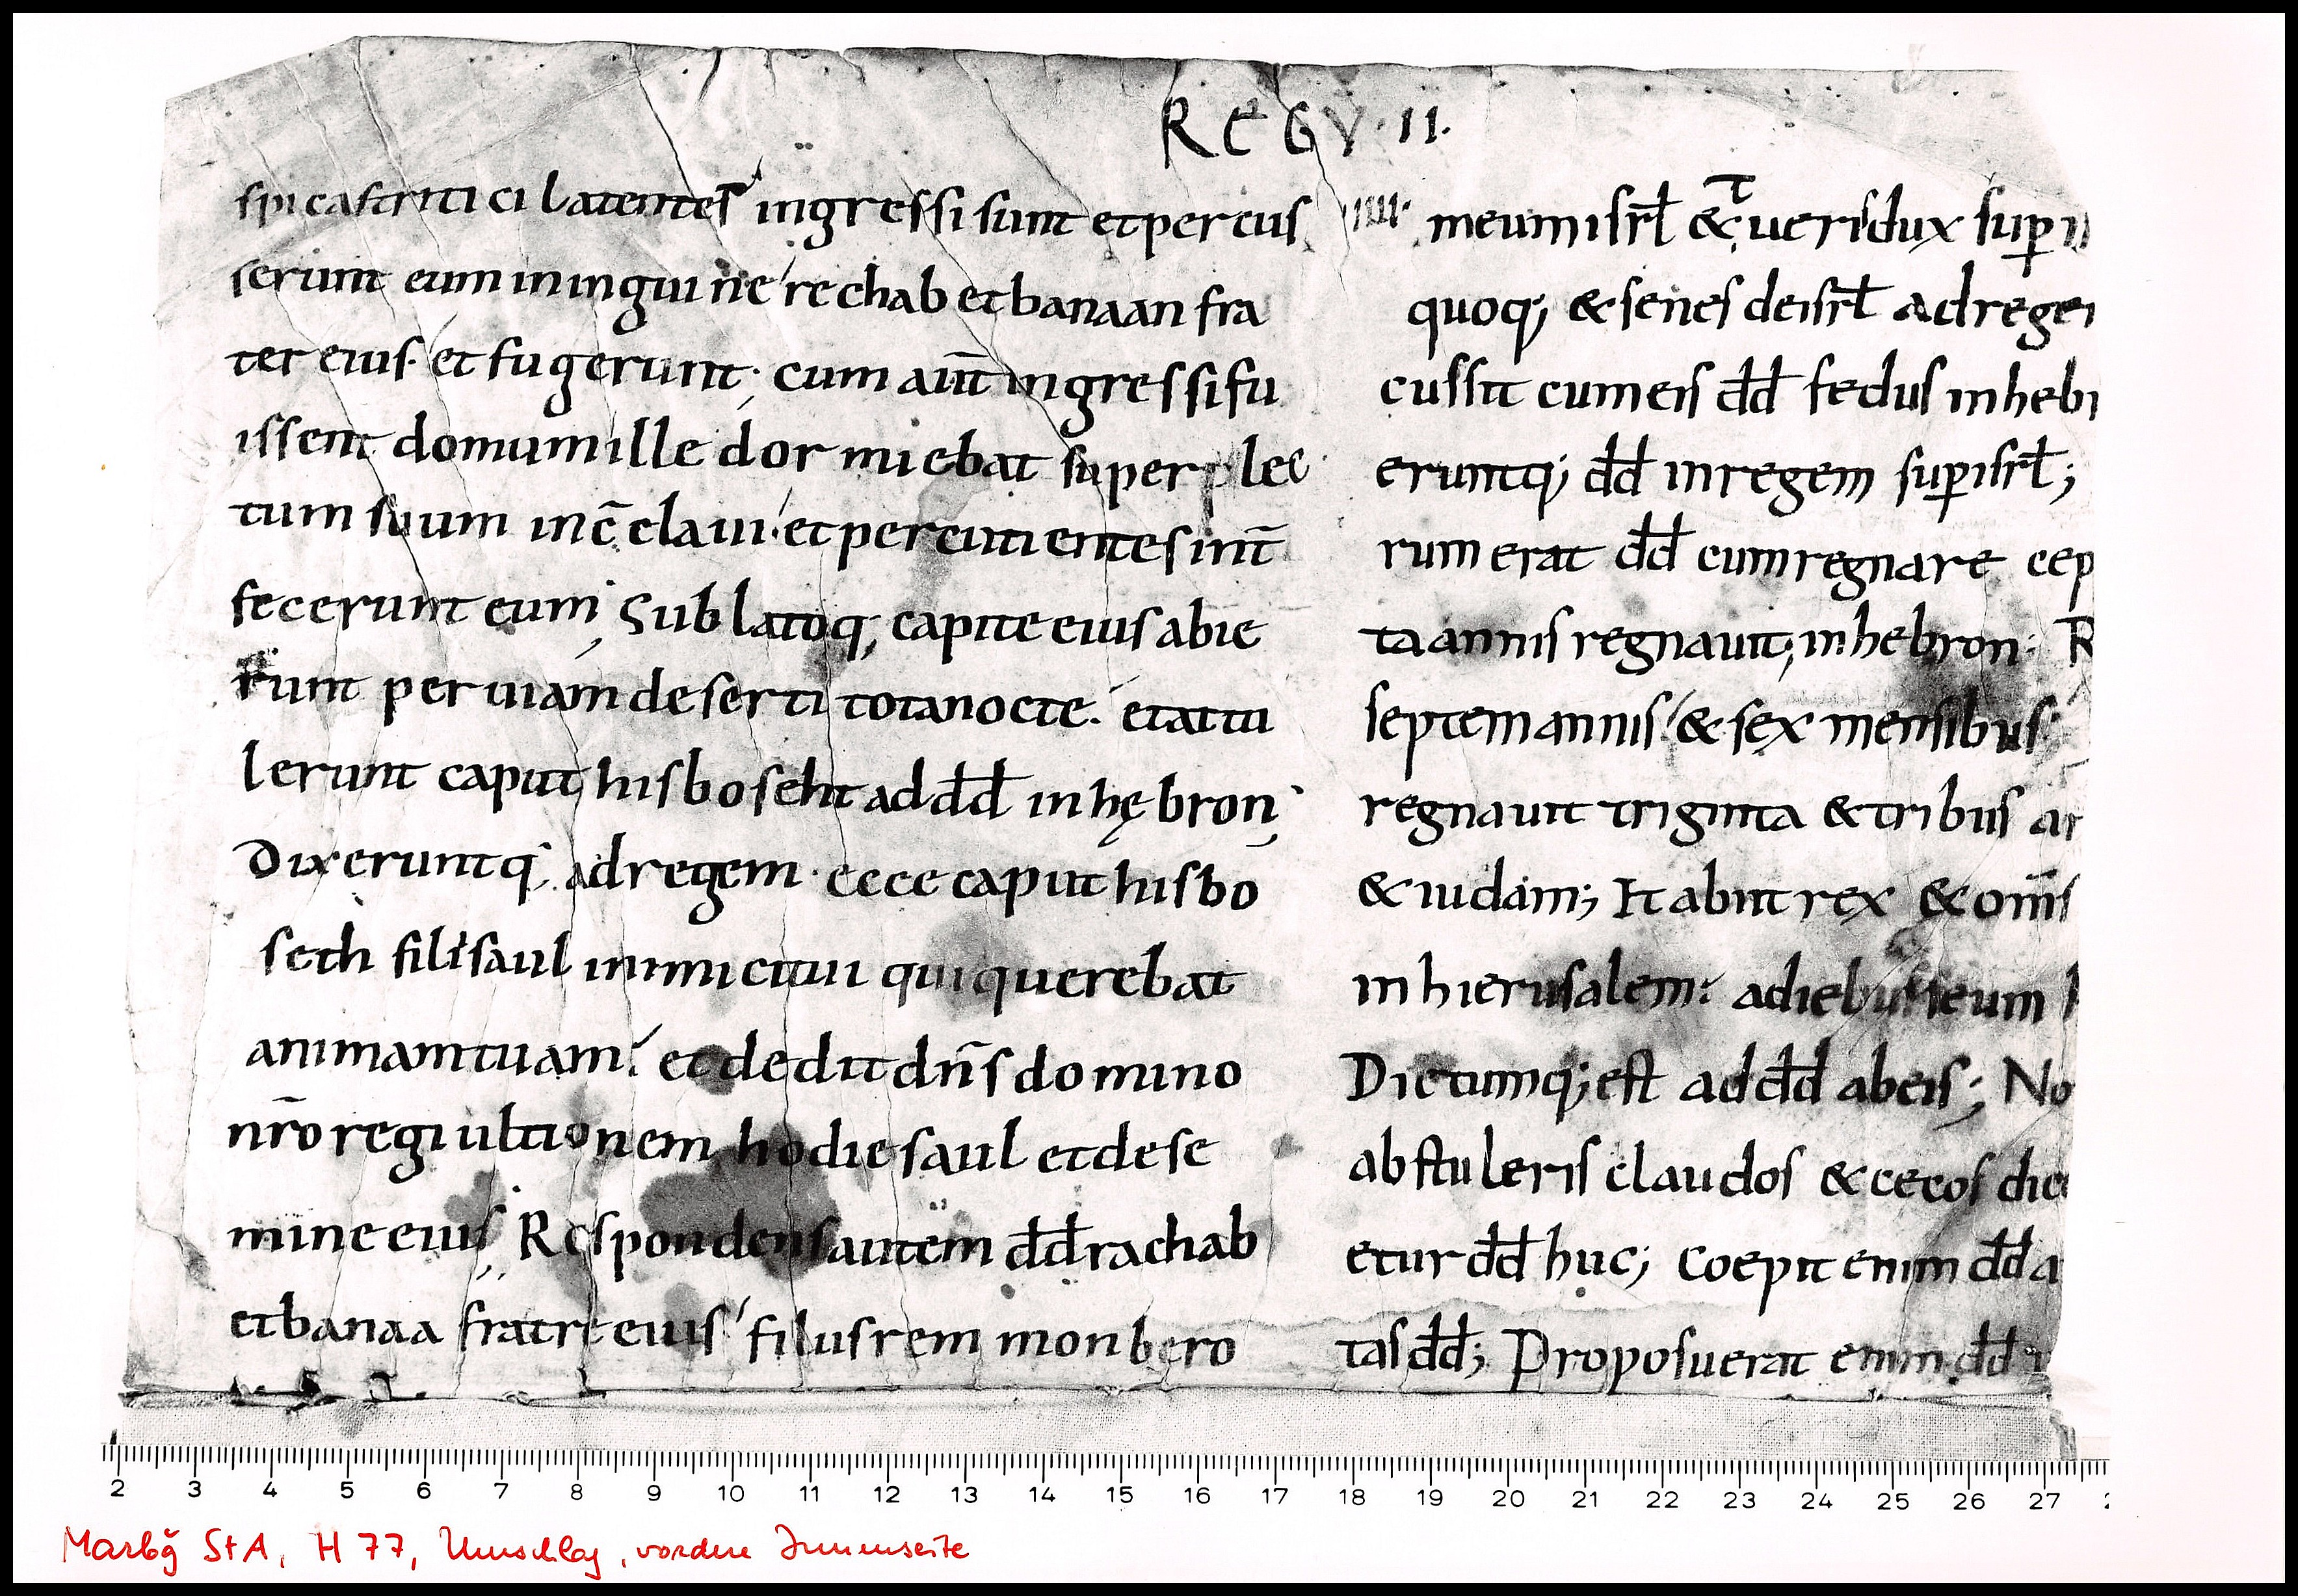 REGV·II·
spicas tritici latentes ingressi sunt et percus
serunt eum in inguine rechab et banaan fra
ter eius· et fugerunt· cum aūt ingressi fu
issent domum ille dormiebat super lec
tum suum in c̄claui· et percutientes int̄
fecerunt eum; Sublatoq; capite eius abie
runt per uiam deserti tota nocte· et attu
lerunt caput hisboseht ad dd̄ in hębron;
Dixeruntq; ad regem· ecce caput hisbo
seth filii saul inimici tui qui querebat
animam tuam· et dedit dn̄s domino
nr̄o regi ultionem hodie saul et de se
mine eius; Respondens autem dd̄ rachab
et banaa fratre eius filius remmon bero
IIIII· meum isrł & t̄ ueris dux sup̱
quoq; & senes de isrł ad rege
cussit cum eis dd̄ fedus in heb
eruntq; dd̄ in regem sup̱ isrł;
rum erat dd̄ cum regnare cep
ta annis regnauit; in hebron· R
septem annis & sex mensibus
regnauit triginta & tribus
& iudam; Et abiit rex & om̄s
in hierusalem· ad iebuseum
Dictumq; est ad dd̄ ab eis; No
abstuleris claudos & cecos dic
etur dd̄ huc; Coepit enim dd̄ a
tas dd̄; Proposuerat enim dd̄
2 3 4 5 6 7 8 9 10 11 12 13 14 15 16 17 18 19 20 21 22 23 24 25 26 27
Marbg StA, H 77, Umschlag, vordere Innenseite